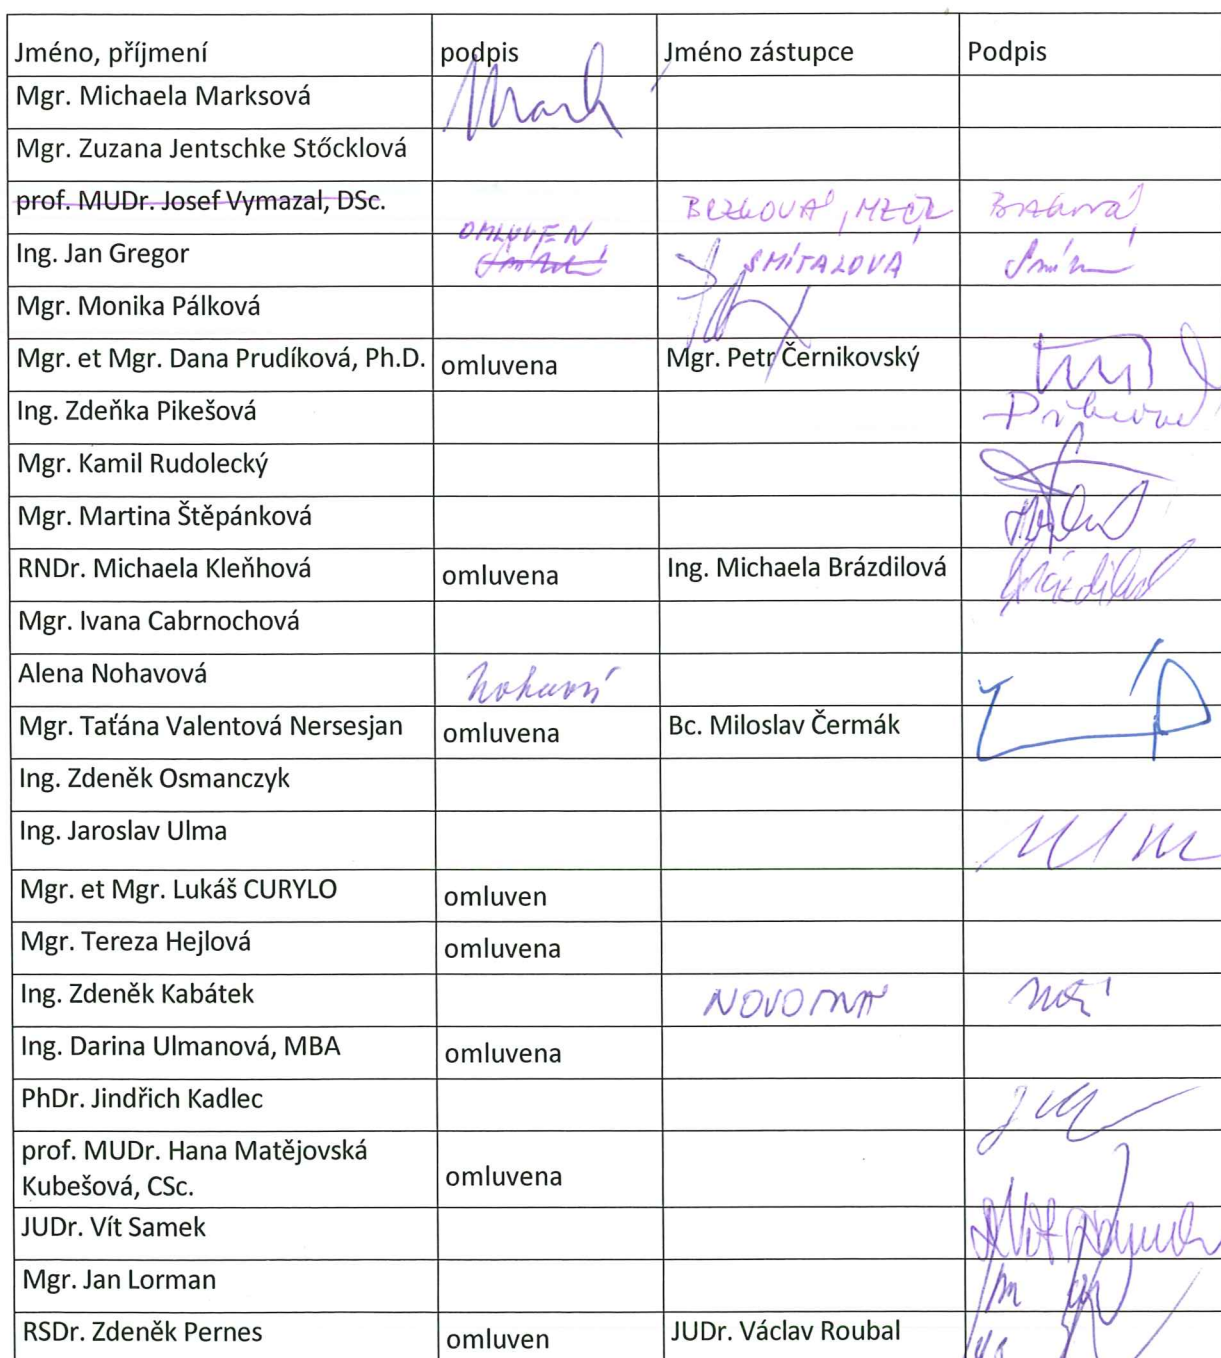 Jméno, příjmení podpis Jméno zástupce Podpis
Mgr. Michaela Marksová
Mgr. Zuzana Jentschke Stőcklová
prof. MUDr. Josef Vymazal, DSc.
OMLUVEN
Ing. Jan Gregor SMÍTALOVÁ
Mgr. Monika Pálková
Mgr. et Mgr. Dana Prudíková, Ph.D. omluvena Mgr. Petr Černikovský
Ing. Zdeňka Pikešová
Mgr. Kamil Rudolecký
Mgr. Martina Štěpánková
RNDr. Michaela Kleňhová omluvena Ing. Michaela Brázdilová
Mgr. Ivana Cabrnochová
Alena Nohavová
Mgr. Taťána Valentová Nersesjan omluvena Bc. Miloslav Čermák
Ing. Zdeněk Osmanczyk
Ing. Jaroslav Ulma
Mgr. et Mgr. Lukáš CURYLO omluven
Mgr. Tereza Hejlová omluvena
Ing. Zdeněk Kabátek NOVOTNÁ
Ing. Darina Ulmanová, MBA omluvena
PhDr. Jindřich Kadlec
prof. MUDr. Hana Matějovská
Kubešová, CSc. omluvena
JUDr. Vít Samek
Mgr. Jan Lorman
RSDr. Zdeněk Pernes omluven JUDr. Václav Roubal